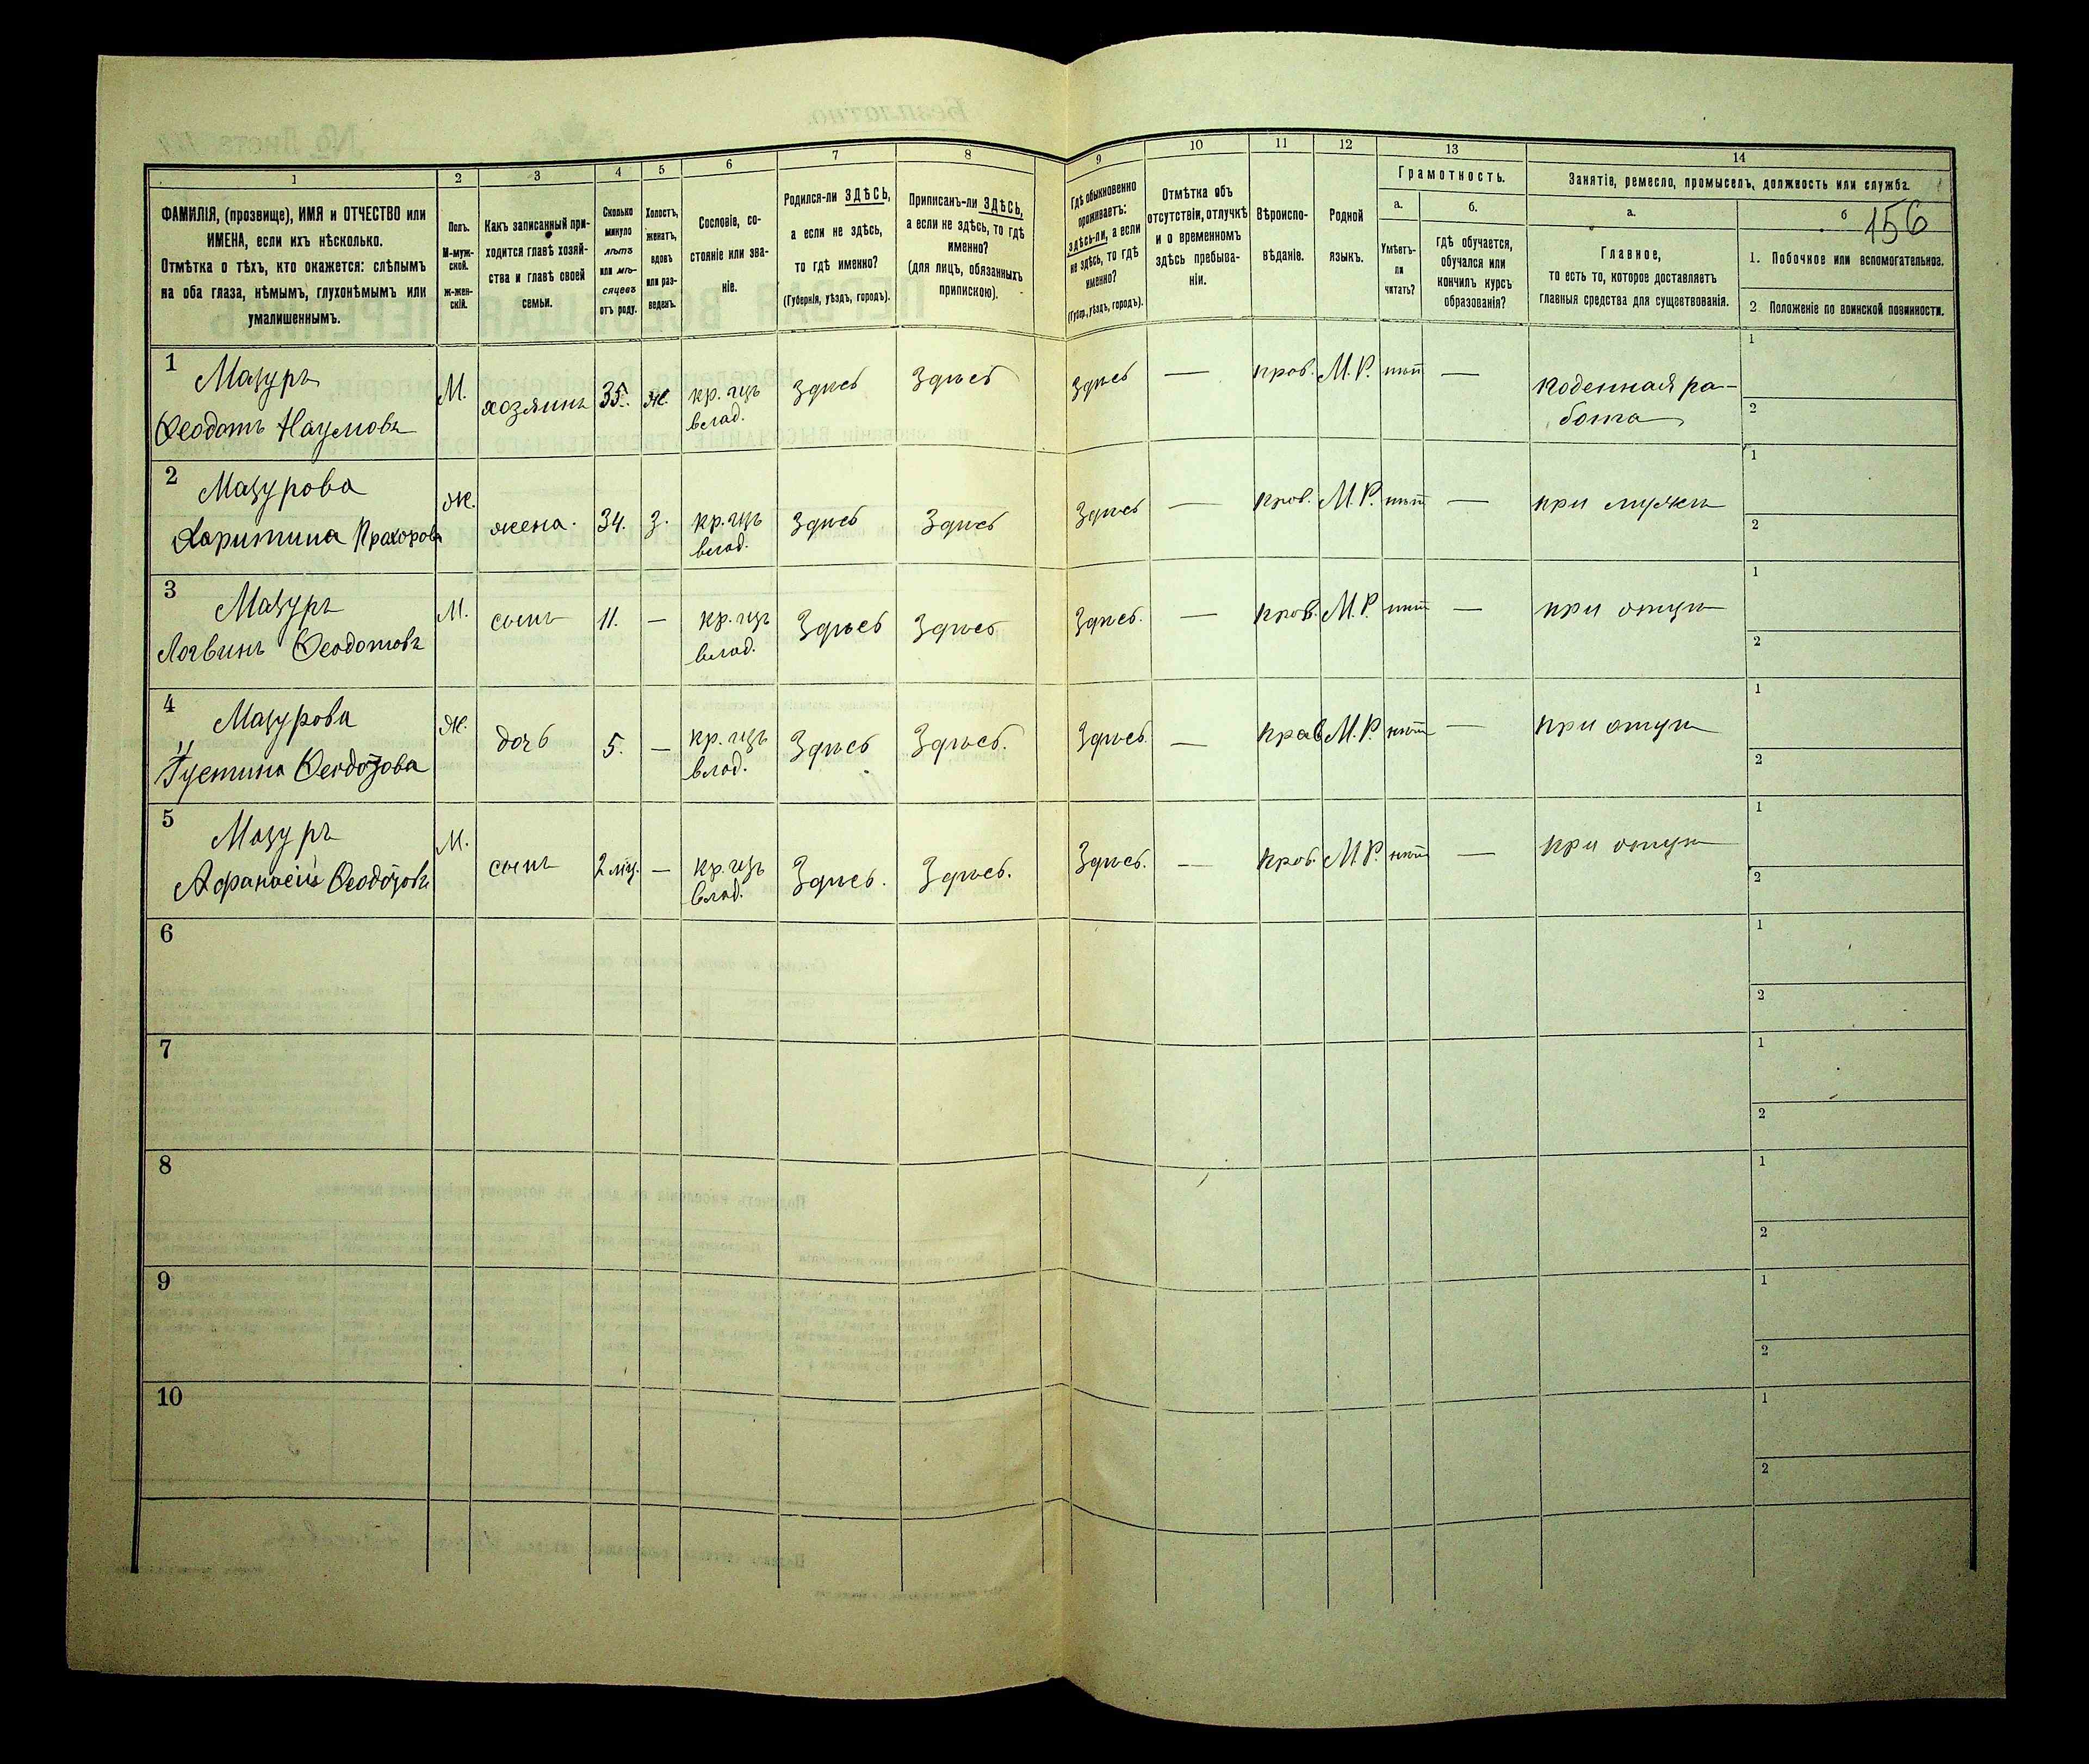 1 2 3 4 5 6 7 8 9 10 11 12 13 14
ФАМИЛІЯ, (прозвище), ИМЯ и ОТЧЕСТВО или
ИМЕНА, если ихъ нѣсколько.
Отмѣтка о тѣхъ, кто окажется: слѣпымъ
на оба глаза, нѣмымъ, глухонѣмымъ или
умалишеннымъ.
Полъ.
М-муж-
ской.
Ж-жен-
скій.
Какъ записанный при-
ходится главѣ хозяй-
ства и главѣ своей
семьи.
Сколько
минуло
лѣтъ
или мѣ-
сяцевъ
отъ роду.
Холостъ,
женатъ,
вдовъ
или раз-
веденъ.
Сословіе, со-
стояніе или зва-
ніе.
Родился-ли ЗДѢСЬ,
а если не здѣсь,
то гдѣ именно?
(Губернія, уѣздъ, городъ).
Приписанъ-ли ЗДѢСЬ,
а если не здѣсь, то гдѣ
именно?
(для лицъ, обязанныхъ
припискою).
Гдѣ обыкновенно
проживаетъ:
здѣсь-ли, а если
не здѣсь, то гдѣ
именно?
(Губер., уѣздъ, городъ).
Отмѣтка объ
отсутствіи, отлучкѣ
и о временномъ
здѣсь пребыва-
ніи.
Вѣроиспо-
вѣданіе.
Родной
языкъ.
Грамотность.
а.
Умѣетъ-
ли
читать?
б.
гдѣ обучается,
обучался или
кончилъ курсъ
образованія?
Занятіе, ремесло, промыселъ, должность или служба.
а.
Главное,
то есть то, которое доставляетъ
главныя средства для существованія.
б
156
1. Побочное или вспомогательное.
2. Положеніе по воинской повинности.
1
Мазуръ
Ѳеодотъ Наумовъ
М.
хозяинъ
35.
Ж.
кр. изъ
влад.
Здѣсь
Здѣсь
Здѣсь
—
прав.
М. Р.
нѣт
—
Поденная ра-
бота
1
2
2
Мазурова
Харитина Прохорова
Ж.
жена.
34.
З.
кр. изъ
влад.
Здѣсь
Здѣсь
Здѣсь
—
прав.
М. Р.
нѣт
—
при мужѣ
1
2
3
Мазуръ
Логвинъ Ѳеодотовъ
М.
сынъ
11.
—
кр. изъ
влад.
Здѣсь
Здѣсь
Здѣсь.
—
прав.
М. Р.
нѣт
—
при отцѣ
1
2
4
Мазурова
Іустина Ѳеодотова
Ж.
дочь
5.
—
кр. изъ
влад.
Здѣсь
Здѣсь.
Здѣсь
—
прав
М. Р.
нѣт
—
при отцѣ
1
2
5
Мазуръ
Афанасій Ѳеодотовъ
М.
сынъ
2 мѣц.
—
кр. изъ
влад.
Здѣсь.
Здѣсь.
Здѣсь.
—
прав.
М. Р.
нѣт
—
при отцѣ
1
2
6
1
2
7
1
2
8
1
2
9
1
2
10
1
2